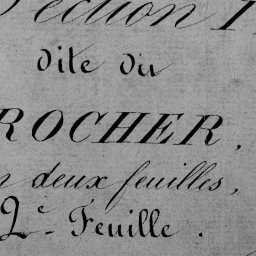 Section
dite du
ROCHER,
deux feuilles,
2e. Feuille.